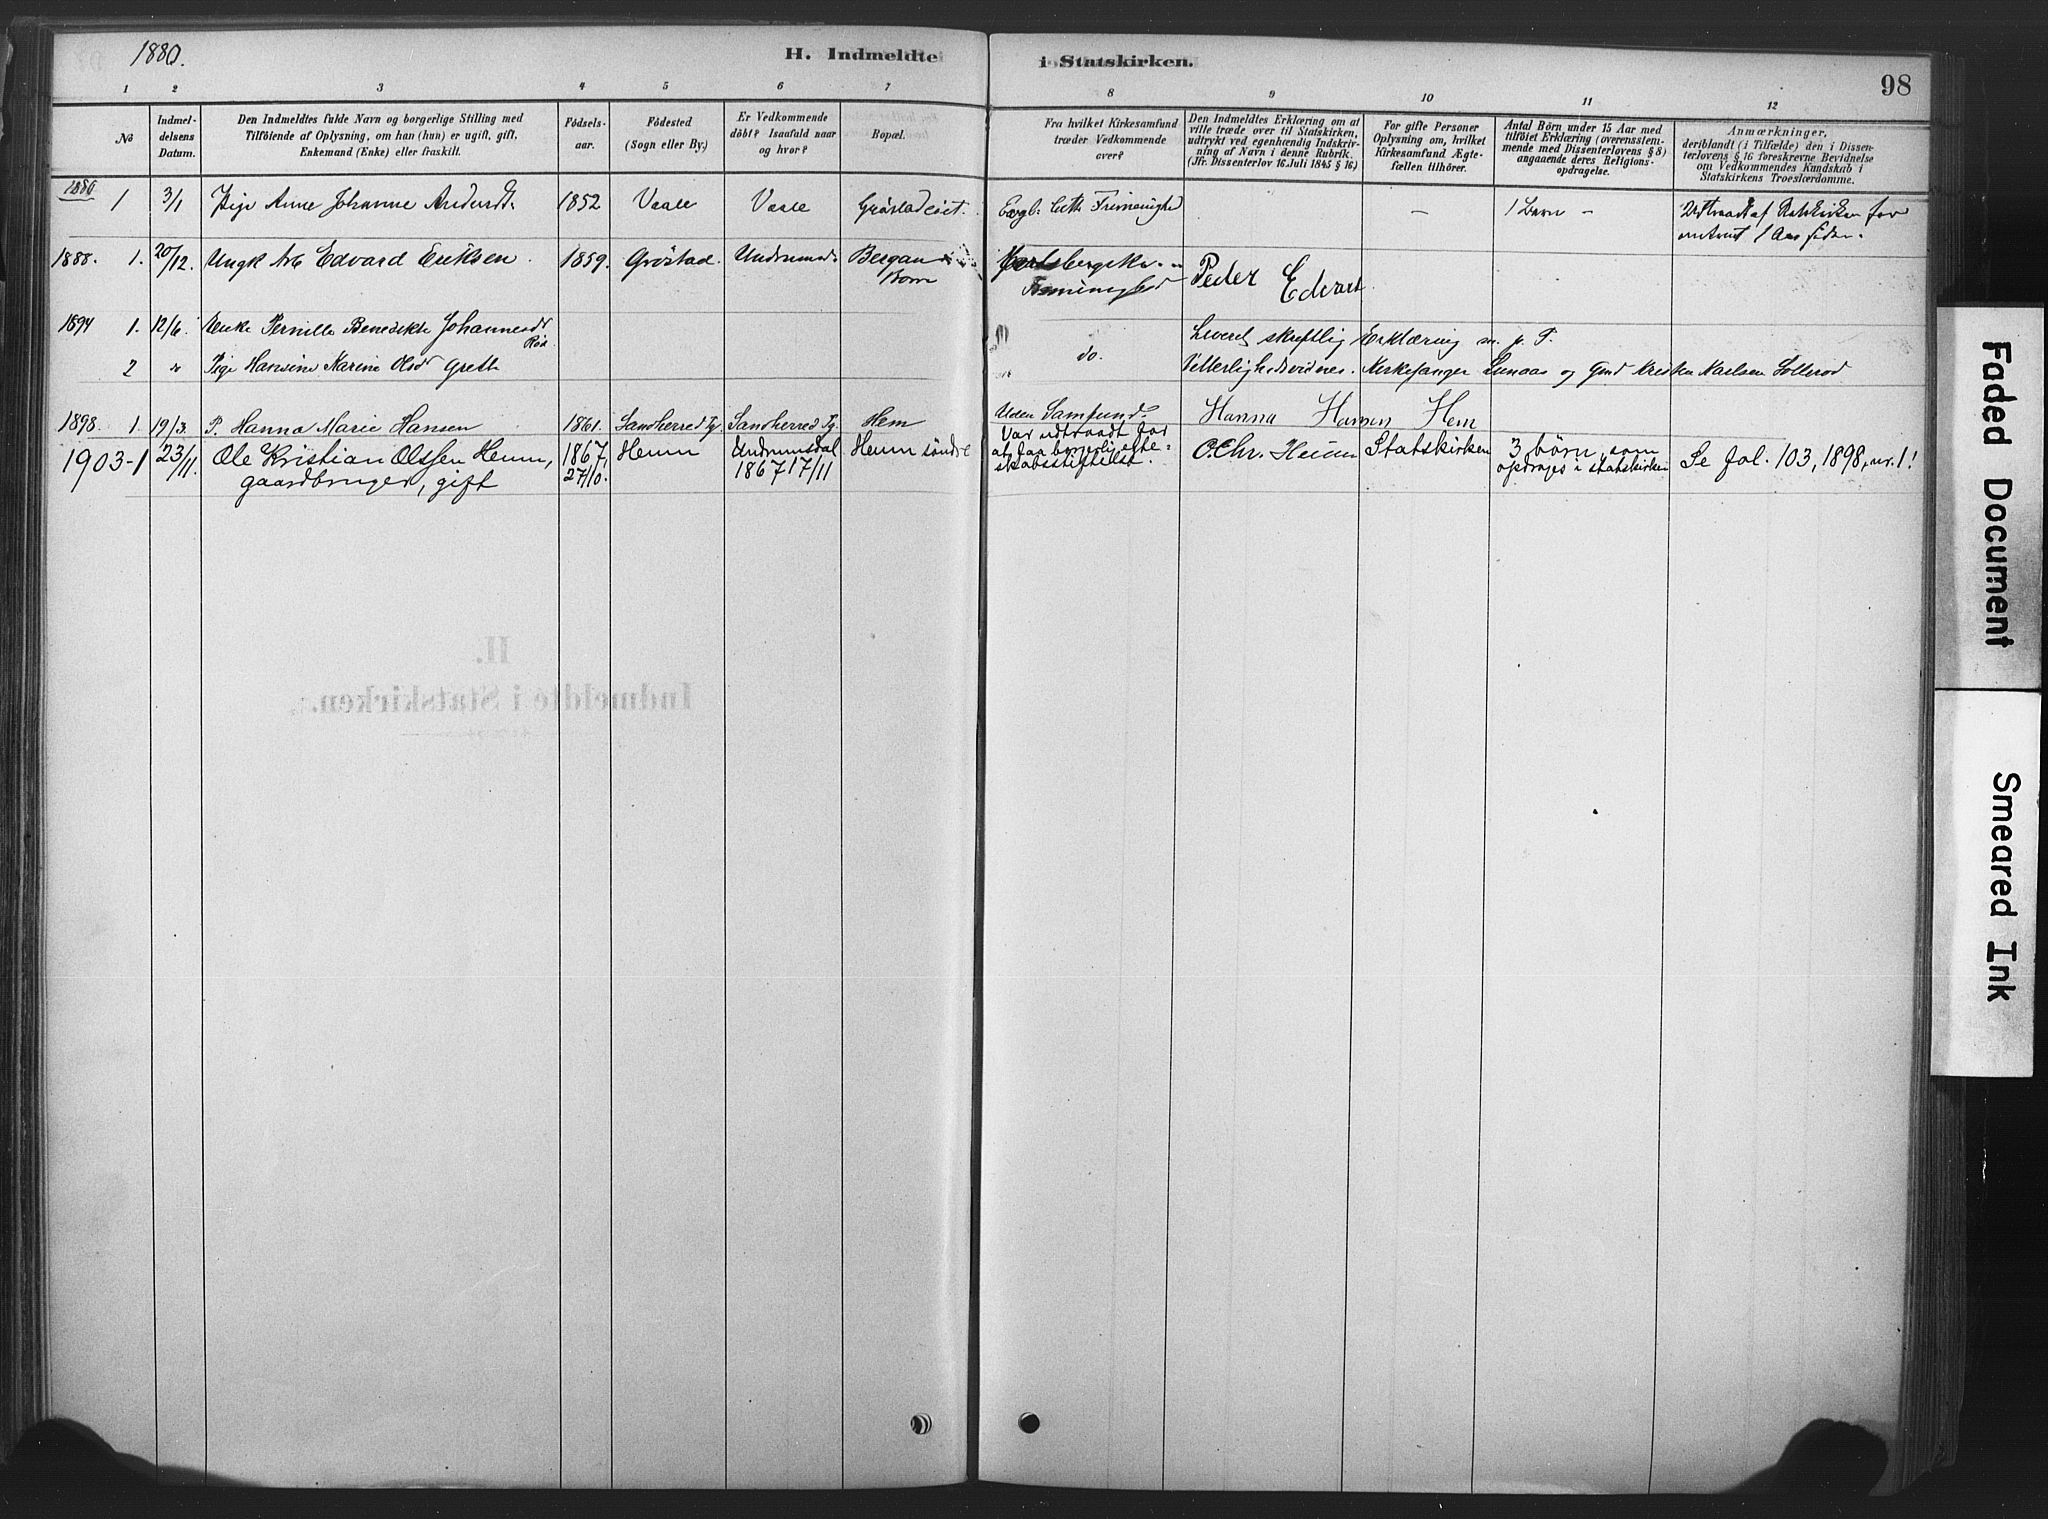 1880.
H. Indmeldte i Statskirken.
98
1 2 3 4 5 6 7 8 9 10 11 12
No
Indmel-
delsens
Datum.
Den Indmeldtes fulde Navn og borgerlige Stilling med
Tilföiende af Oplysning, om han (hun) er ugift, gift,
Enkemand (Enke) eller fraskilt.
Födsels-
aar.
Födested
(Sogn eller By.)
Er Vedkommende
döbt? Isaafald naar
og hvor?
Bopæl.
Fra hvilket Kirkesamfund
træder Vedkommende
over?
Den Indmeldtes Erklæring om at
ville træde over til Statskirken,
udtrykt ved egenhændig Indskriv-
ning af Navn i denne Rubrik.
(Jfr. Dissenterlov 16 Juli 1845 § 16.)
For gifte Personer
Oplysning om, hvilket
Kirkesamfund Ægte-
fællen tilhörer.
Antal Börn under 15 Aar med
tilföiet Erklæring (overensstem-
mende med Dissenterlovens § 8)
angaaende deres Religions-
opdragelse.
Anmærkninger,
deriblandt (i Tilfælde) den i Dissen-
terlovens § 16 foreskrevne Bevidnelse
om Vedkommendes Kundskab i
Statskirkens Troeslærdomme.
1880
1 3/1 Pige Anne Johanne Andersdt. 1852 Vaale Vaale Evgl. Luth. Frimenighed – 1 Barn – Udtraadt af Statskirken for
omtrent 1 Aar siden.
1888. 1. 20/12. Ungk Arb Edvard Eriksen. 1859. Gröstad. Undrumsd. Bergan
Frimenighed Peder Edvart
1894 1. 12/6. Enke Pernille Benedikte Johannesdt
Röd
Leveret skriftlig Erklæring m. p. P.
2 " Pige Hansine Marine Olsdr Greth do. Vitterlighedsvidnes. Kirkesanger Lunaas og Gmd Kristen Karlsen Sollerod
1898. 1. 19/3. P. Hanna Marie Hansen 1861. Sandherred Pg. Sandherred Pg. Hem Uden Samfund. Hanna Hansen Hem
1903-1 23/11. Ole Kristian Olssen Hemn,
gaardbruger, gift
1867,
27/10.
Hemn
Undrumsdal
1867 17/11
Hemn söndre
Var udtraadt for
at faa borgerlig ægte-
skabsstiftelse.
O. Chr. Hemn
Statskirken
3 börn, som
opdrages i statskirken
Se fol. 103, 1898, nr. 1!
H.
Indmeldte i Statskirken.
Faded Document
Smeared Ink